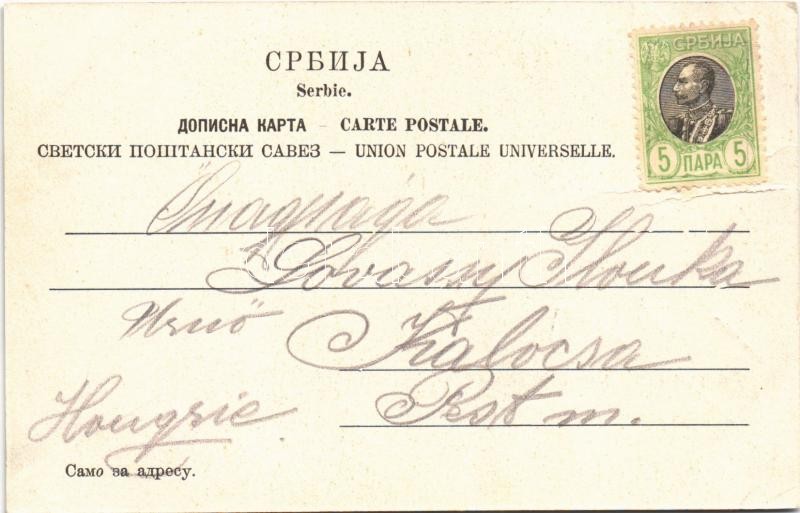 СРБИЈА
Serbie.
ДОПИСНА КАРТА - CARTE POSTALE.
СВЕТСКИ ПОШТАНСКИ САВЕЗ — UNION POSTALE UNIVERSELLE.
СРБИЈА
5 ПАРА 5
Lovassy Ilonka
Kalocsa
Pest m.
Hongrie
Само за адресу.